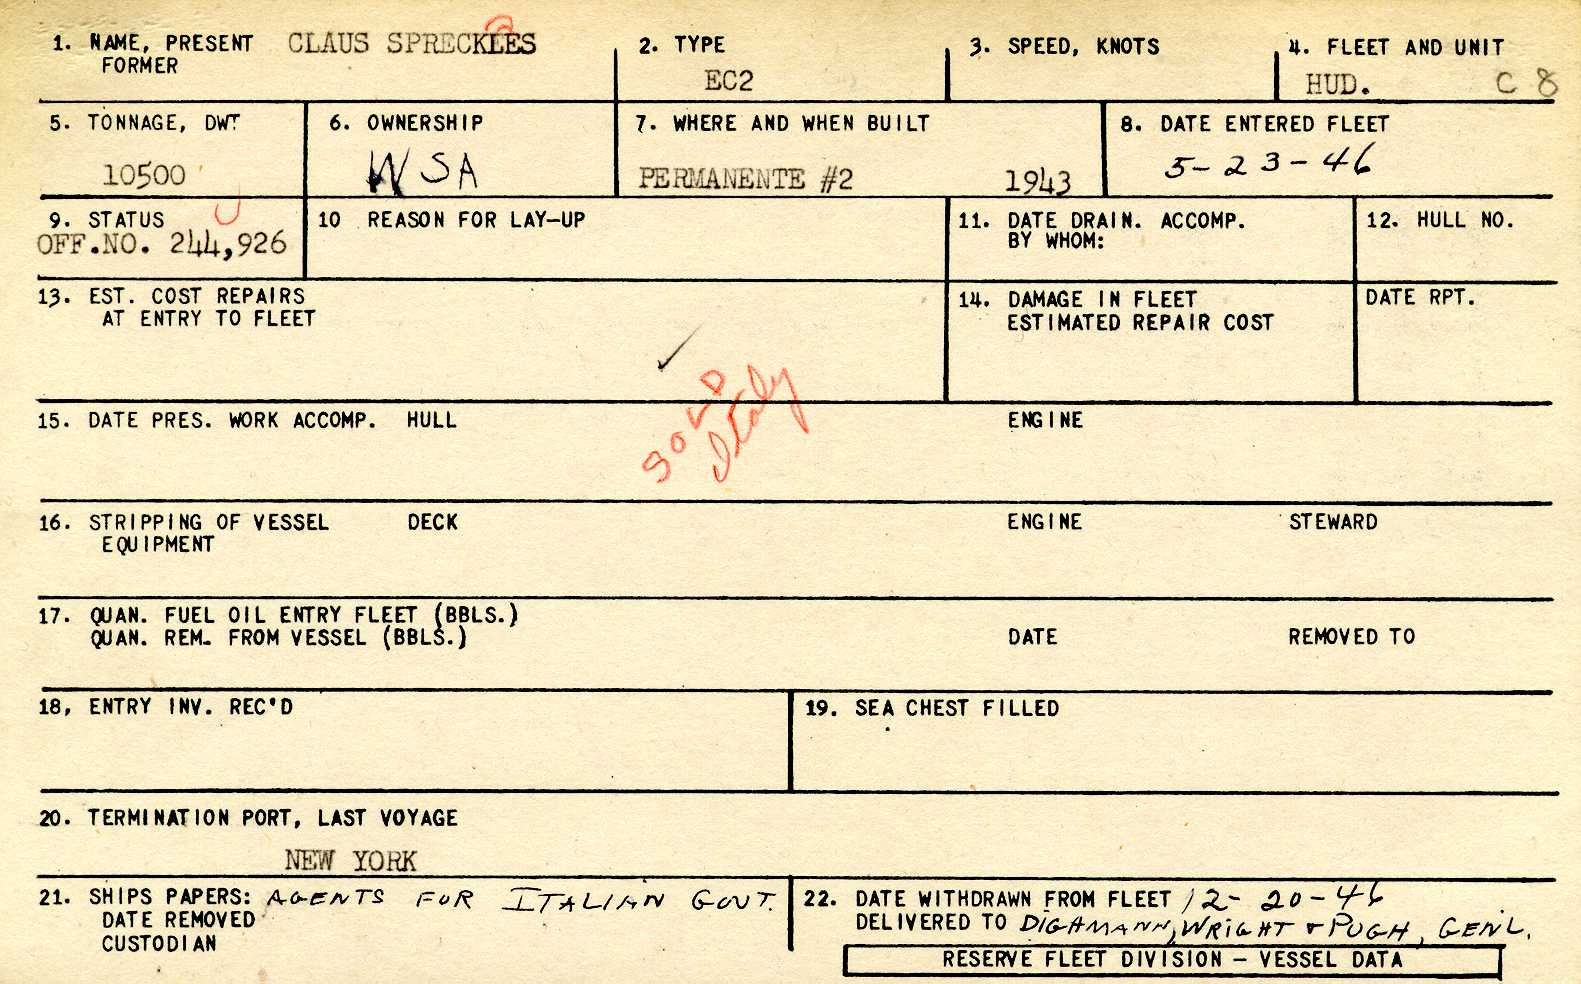 1. NAME, PRESENT CLAUS SPRECKLES
FORMER
2. TYPE
EC2
3. SPEED, KNOTS
4. FLEET AND UNIT
HUD. C 8
5. TONNAGE, DWT
10500
6. OWNERSHIP
WSA
7. WHERE AND WHEN BUILT
PERMANENTE #2 1943
8. DATE ENTERED FLEET
5-23-46
9. STATUS
OFF.NO. 244,926
10 REASON FOR LAY-UP
11. DATE DRAIN. ACCOMP.
BY WHOM:
12. HULL NO.
13. EST. COST REPAIRS
AT ENTRY TO FLEET
14. DAMAGE IN FLEET
ESTIMATED REPAIR COST
DATE RPT.
SOLD
Italy
15. DATE PRES. WORK ACCOMP. HULL ENGINE
16. STRIPPING OF VESSEL DECK ENGINE STEWARD
EQUIPMENT
17. QUAN. FUEL OIL ENTRY FLEET (BBLS.)
QUAN. REM. FROM VESSEL (BBLS.) DATE REMOVED TO
18, ENTRY INV. REC'D
19. SEA CHEST FILLED
20. TERMINATION PORT, LAST VOYAGE
NEW YORK
21. SHIPS PAPERS: AGENTS FOR ITALIAN GOVT.
DATE REMOVED
CUSTODIAN
22. DATE WITHDRAWN FROM FLEET 12-20-46
DELIVERED TO DIGHMANN, WRIGHT & PUGH, GENL.
RESERVE FLEET DIVISION – VESSEL DATA